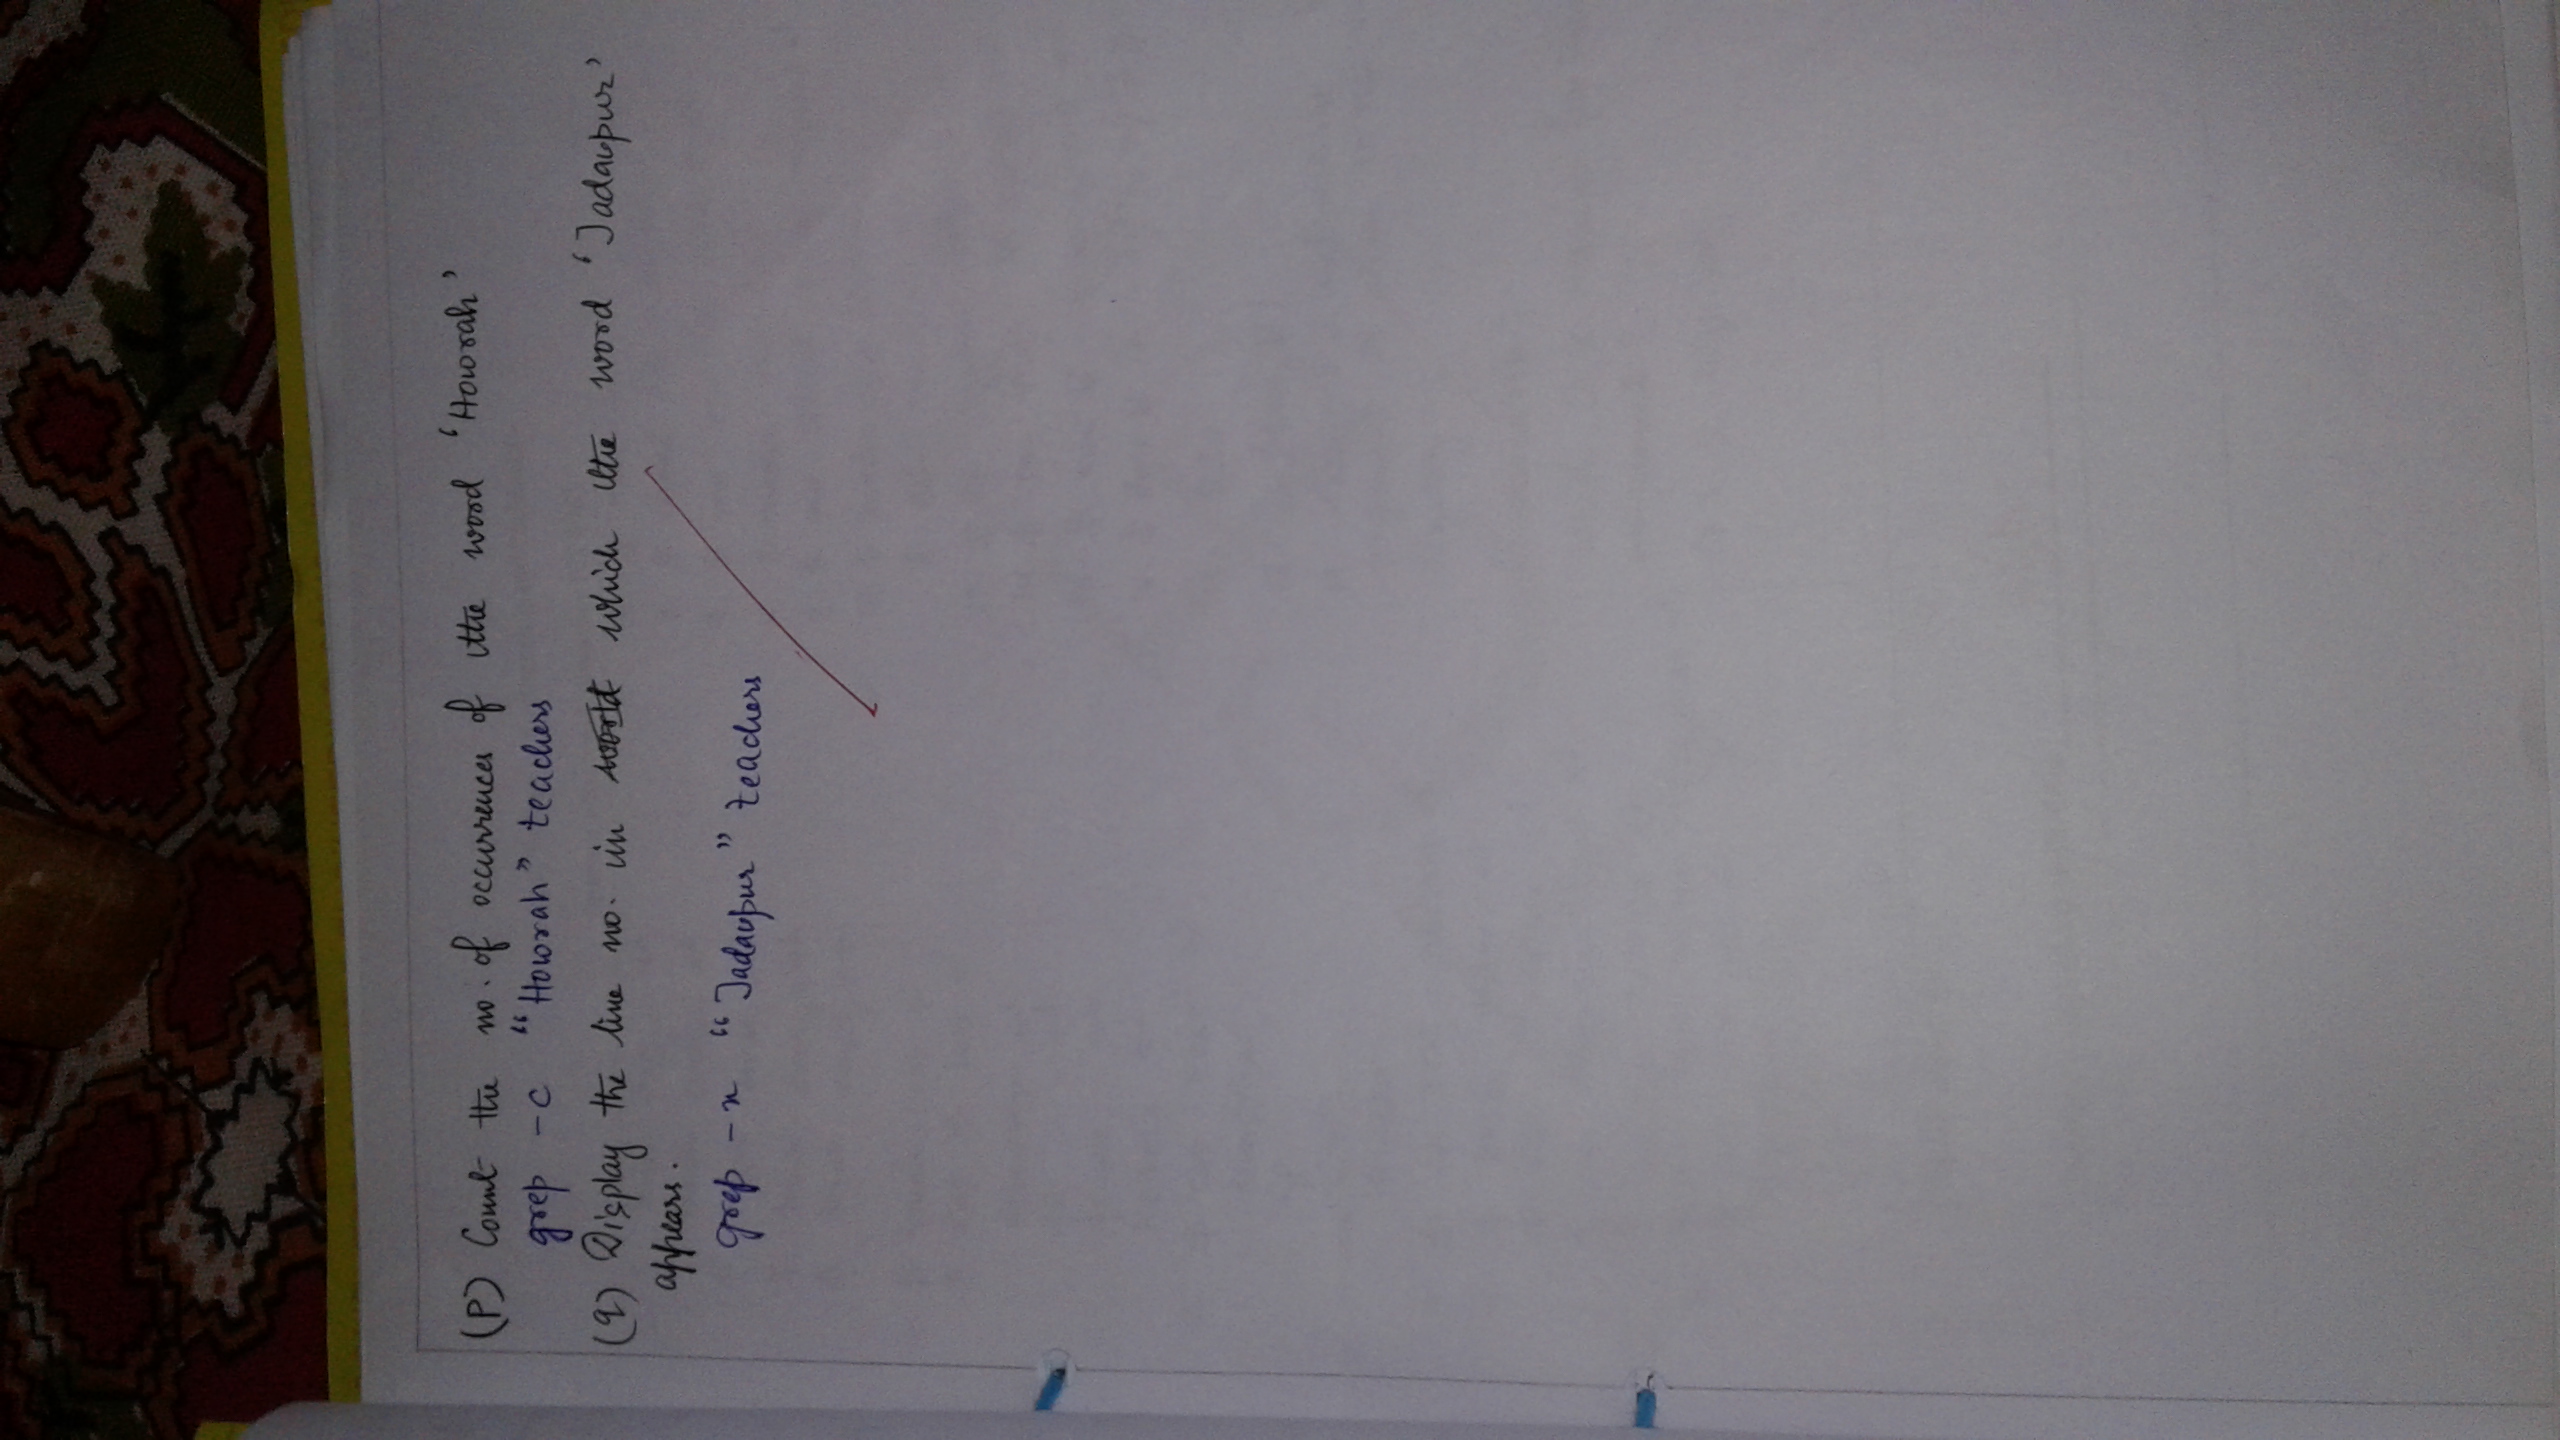 (P) Count the no. of occurrences of the word ‘Howrah’
grep -c “Howrah” teachers
(q) Display the line no. in world which the word ‘Jadavpur’
appears.
grep -n “Jadavpur” teachers